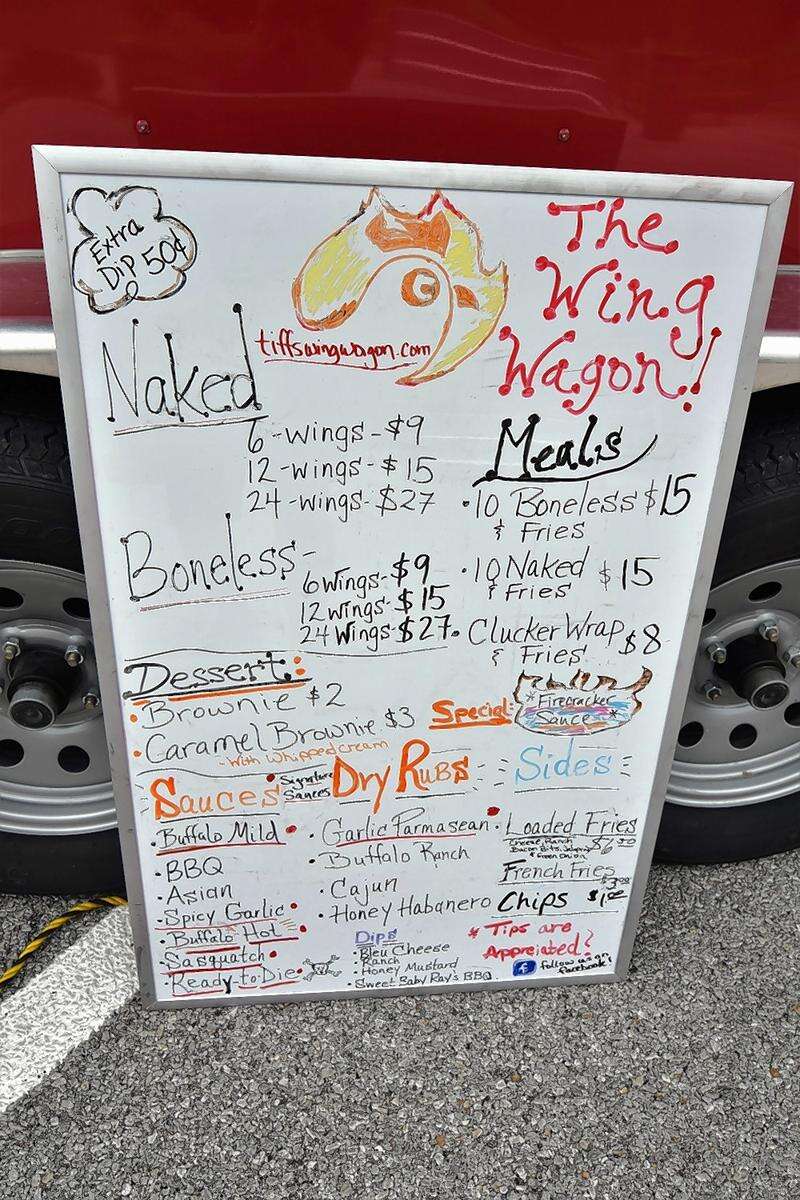 Extra
Dip 50¢
The
Wing
Wagon!
tiffswingwagon.com
Naked
6-wings-$9
12-wings-$15
24-wings-$27
Boneless-
6 wings-$9
12 wings-$15
24 Wings-$27
Meals
•10 Boneless $15
& Fries
•10 Naked $15
& Fries
• Clucker Wrap $8
& Fries
Dessert:
•Brownie $2
•Caramel Brownie $3
-With Whipped cream
Special:
*Firecracker
Sauce*
Sauces
• Signature
Sauces
•Buffalo Mild •
•BBQ
•Asian
•Spicy Garlic •
•Buffalo Hot •
•Sasquatch •
•Ready-to-Die •
Dry Rubs
•Garlic Parmasean •
•Buffalo Ranch
•Cajun
•Honey Habanero
Dips
•Bleu Cheese
Ranch
•Honey Mustard
•Sweet Baby Ray's BBQ
Sides
•Loaded Fries
Cheese, Ranch
Bacon Bits, Jalapeno
& Green Onion
French Fries
Chips
* Tips are
Appreiated!
f follow us on
facebook!